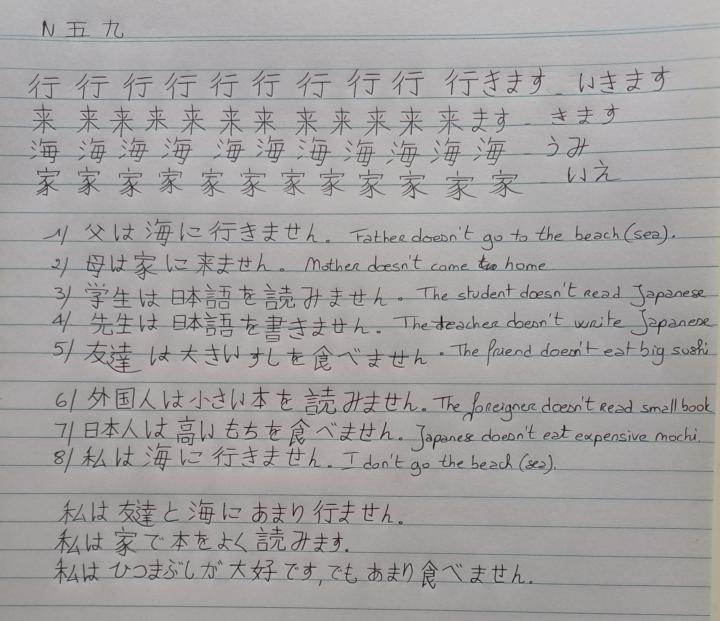 N 五 九
行 行 行 行 行 行 行 行 行 行きます - いきます
来 来 来 来 来 来 来 来 来 来 来 来ます - きます
海 海 海 海 海 海 海 海 海 海 海 - うみ
家 家 家 家 家 家 家 家 家 家 家 家 - いえ
1/ 父は海に行きません。 Father doesn't go to the beach (sea).
2/ 母は家に来ません。 Mother doesn't come home
3/ 学生は日本語を読みません。 The student doesn't read Japanese
4/ 先生は日本語を書きません。 The teacher doesn't write Japanese
5/ 友達は大きいすしを食べません。 The friend doesn't eat big sushi
6/ 外国人は小さい本を読みません。 The foreigner doesn't read small book
7/ 日本人は高いもちを食べません。 Japanese doesn't eat expensive mochi.
8/ 私は海に行きません。 I don't go the beach (sea).
私は友達と海にあまり行ません。
私は家で本をよく読みます.
私はひつまぶしが大好です,でもあまり食べません.